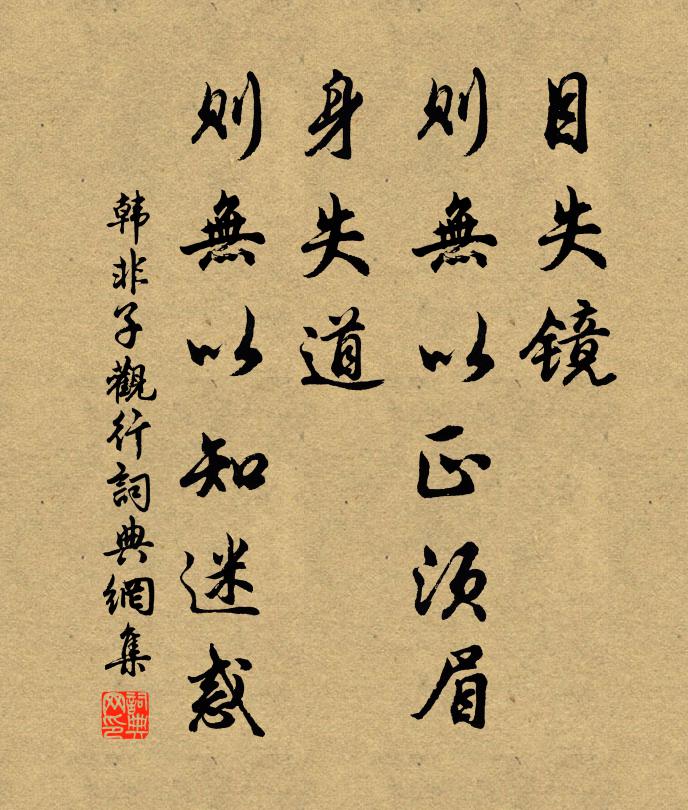 目失镜
则無以正须眉
身失道
则無以知迷惑
韩非子觀行詞典網集
詞典
网印